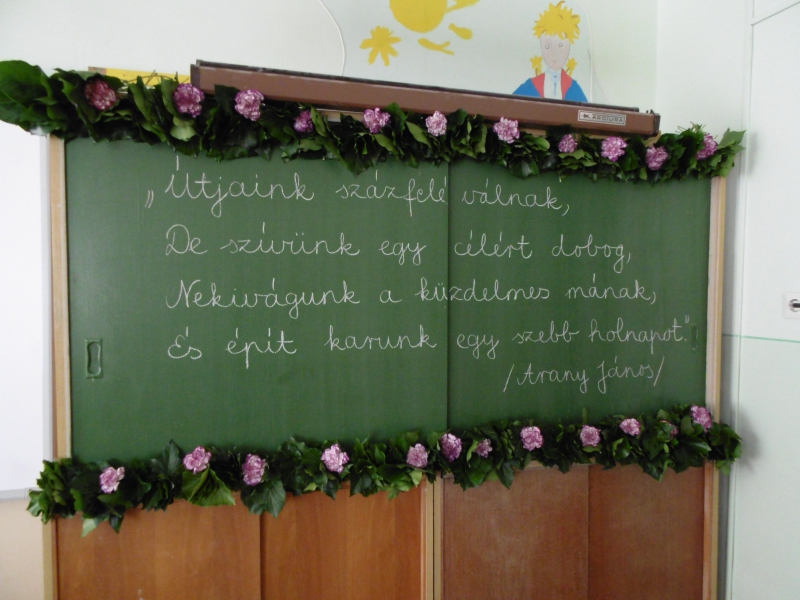 „Útjaink százfelé válnak,
De szívünk egy célért dobog,
Nekivágunk a küzdelmes mának,
És épít karunk egy szebb holnapot."
/Arany János/